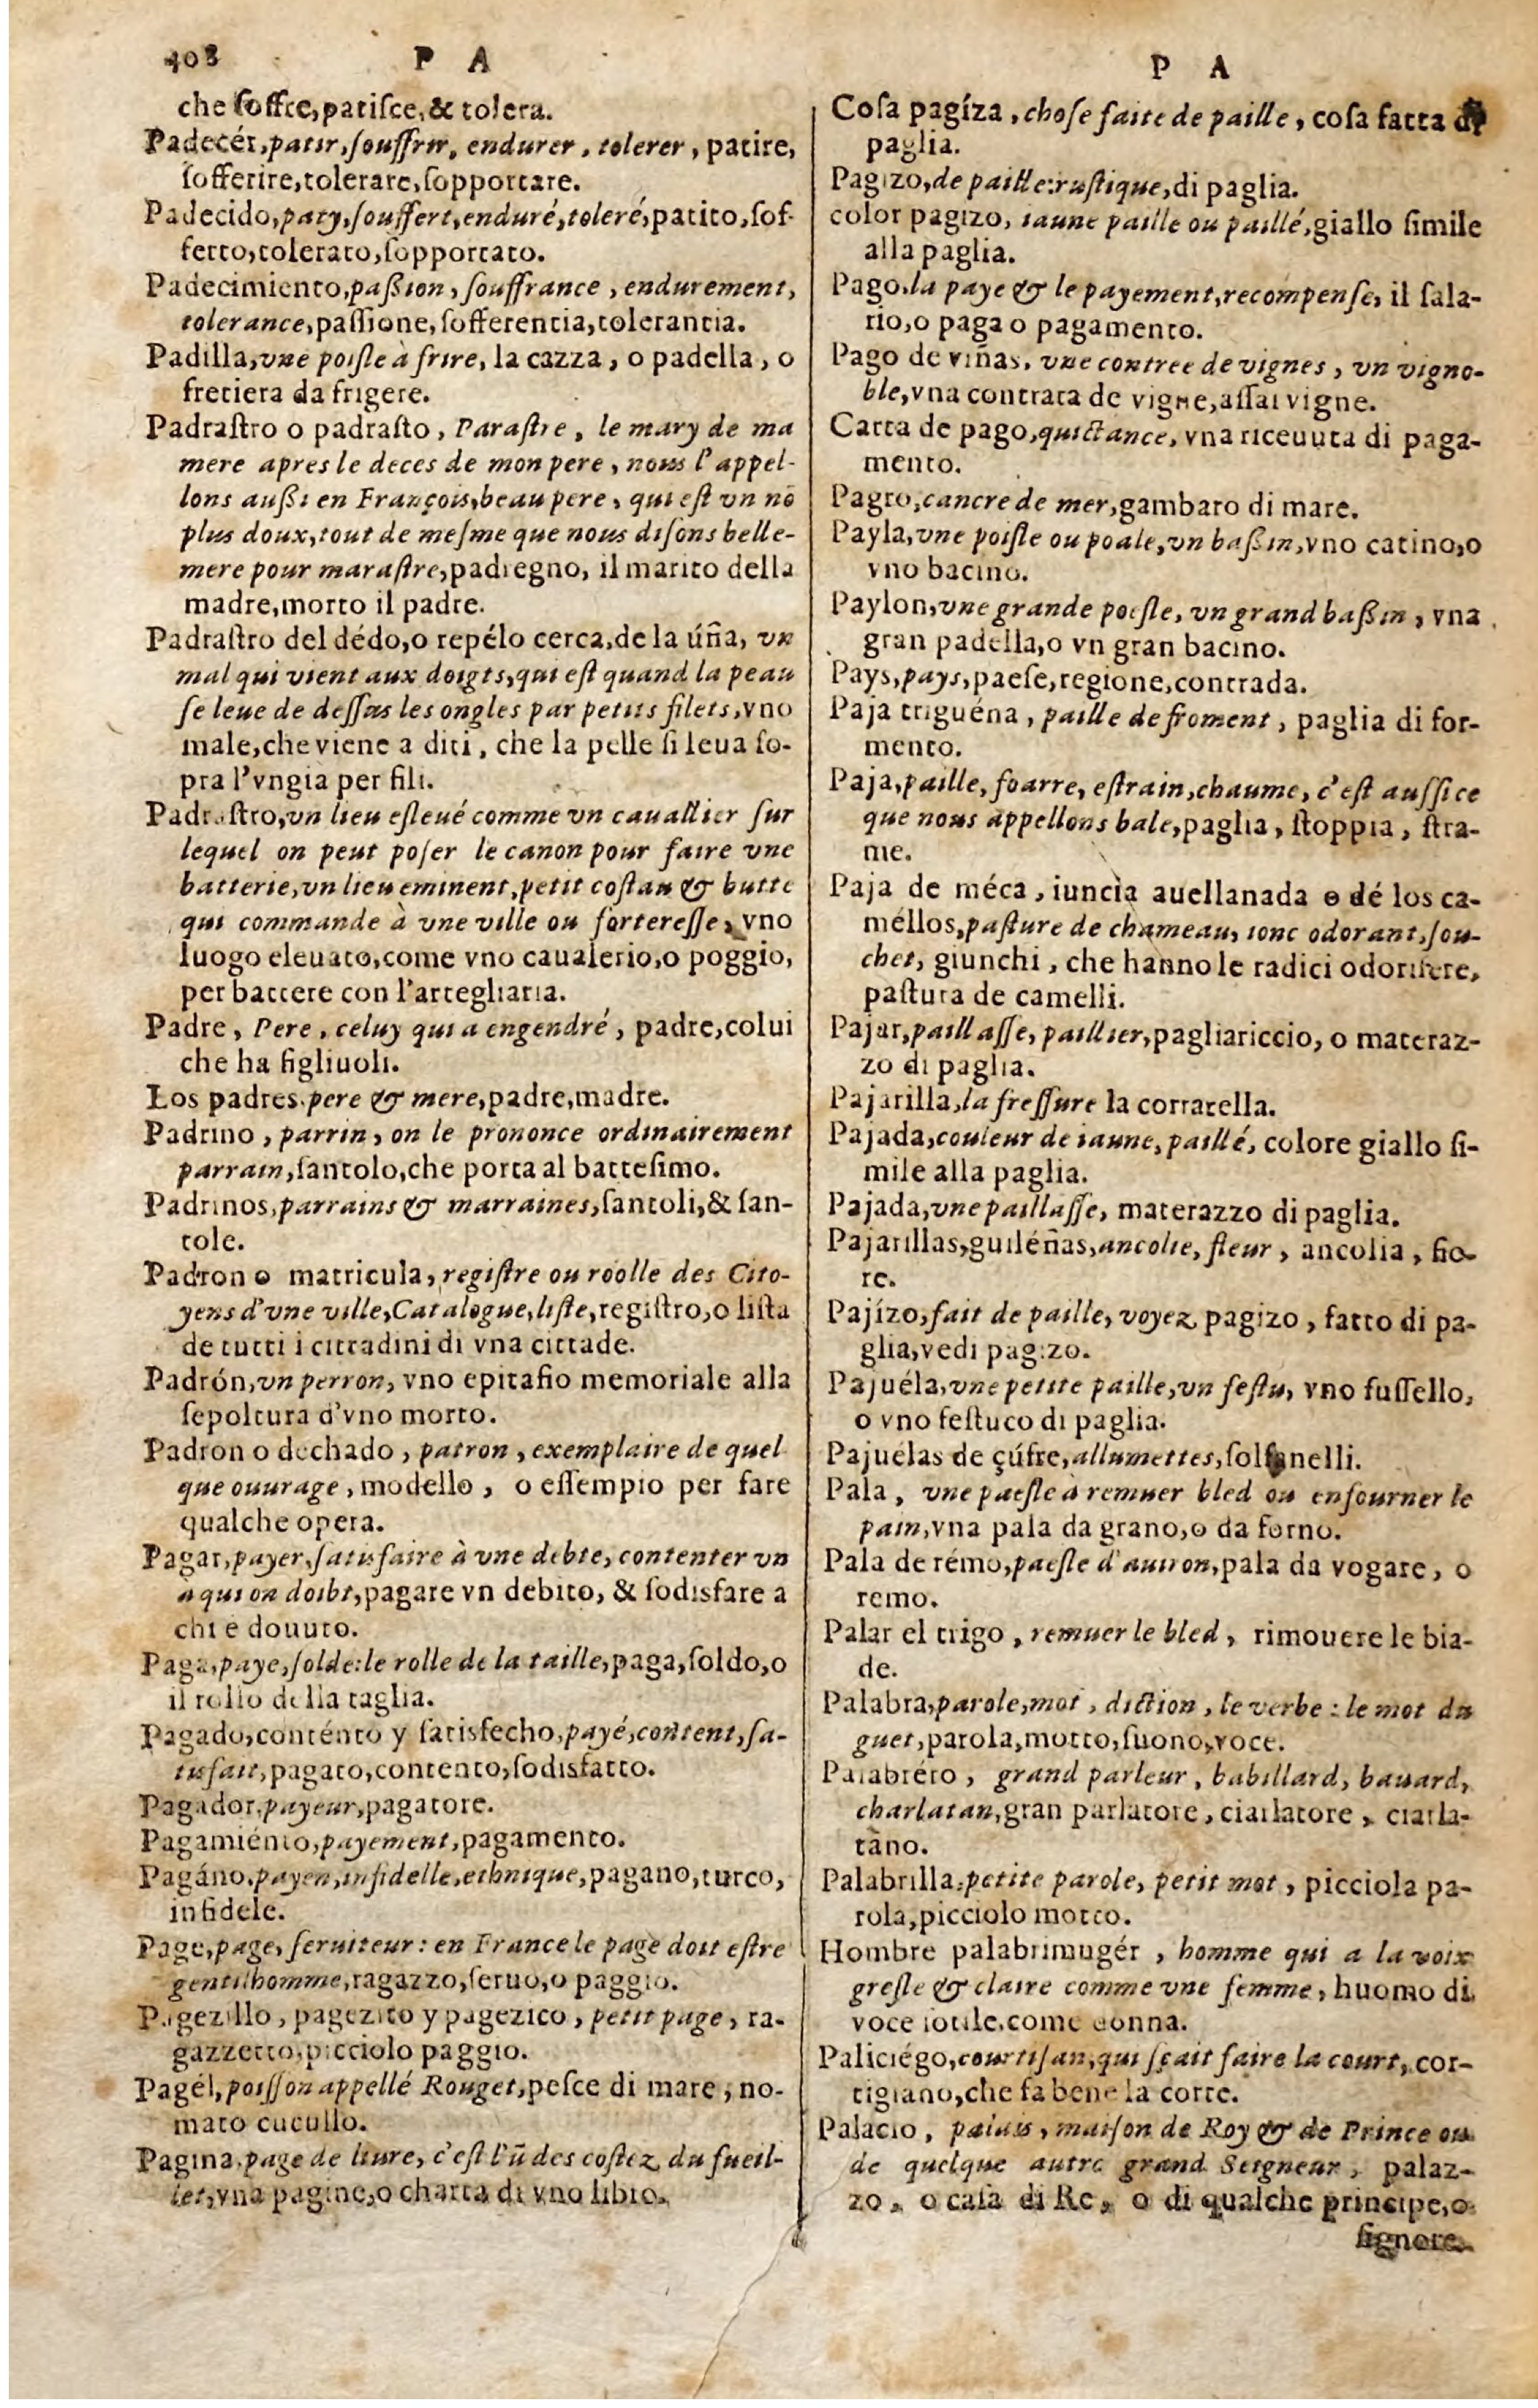 408 P A
che ſoffre,patiſce,& tolera.
Padecér,patir,ſouffrir, endurer, tolerer, patire,
ſofferire,tolerare,ſopportare.
Padecido,paty,ſouffert,enduré,toleré,patito,ſof-
ferto,tolerato,ſopportato.
Padecimiento,paßion, ſouffrance, endurement,
tolerance,paſſione,ſofferentia,tolerantia.
Padilla,vne poiſle à frire, la cazza, o padella, o
fretiera da frigere.
Padraſtro o padraſto, Paraſtre, le mary de ma
mere apres le deces de mon pere, nous l'appel-
lons außi en François,beau pere, qui eſt vn nō
plus doux,tout de meſme que nous diſons belle-
mere pour maraſtre,padregno, il marito della
madre,morto il padre.
Padraſtro del dédo,o repélo cerca,de la úña, vn
mal qui vient aux doigts,qui eſt quand la peau
ſe leue de deſſus les ongles par petits filets,vno
male,che viene a diti, che la pelle ſi leua ſo-
pra l'vngia per fili.
Padraſtro,vn lieu eſleué comme vn cauallier ſur
lequel on peut poſer le canon pour faire vne
batterie,vn lieu eminent,petit coſtau & butte
qui commande à vne ville ou fortereſſe, vno
luogo eleuato,come vno caualerio,o poggio,
per battere con l'artegliaria.
Padre, Pere, celuy qui a engendré, padre,colui
che ha figliuoli.
Los padres.pere & mere,padre,madre.
Padrino, parrin, on le prononce ordinairement
parrain,ſantolo,che porta al batteſimo.
Padrinos,parrains & marraines,ſantoli,& ſan-
tole.
Padron o matricula, regiſtre ou roolle des Cito-
yens d'vne ville,Catalogue,liſte,regiſtro,o liſta
de tutti i cittadini di vna cittade.
Padrón,vn perron, vno epitafio memoriale alla
ſepoltura d'vno morto.
Padron o dechado, patron, exemplaire de quel
que ouurage, modello, o eſſempio per fare
qualche opera.
Pagar,payer,ſatisfaire à vne debte, contenter vn
à qui on doibt,pagare vn debito, & ſodisfare a
chi e douuto.
Paga,paye,ſolde:le rolle de la taille,paga,ſoldo,o
il rollo della taglia.
Pagado,conténto y ſatisfecho,payé,content,ſa-
tisfait,pagato,contento,ſodisfatto.
Pagador,payeur,pagatore.
Pagamiénto,payement,pagamento.
Pagáno,payen,infidelle,ethnique,pagano,turco,
infidele.
Page,page, ſeruiteur: en France le page doit eſtre
gentilhomme,ragazzo,ſeruo,o paggio.
Pagezillo, pagezito y pagezico, petit page, ra-
gazzetto,picciolo paggio.
Pagél,poiſſon appellé Rouget,peſce di mare, no-
mato cucullo.
Pagina,page de liure, c'eſt l'ũ des coſtez du fueil-
let,vna pagine,o charta di vno libro.
P A
Coſa pagíza, choſe faite de paille, coſa fatta di
paglia.
Pagizo,de paille:ruſtique,di paglia.
color pagizo, iaune paille ou paillé,giallo ſimile
alla paglia.
Pago,la paye & le payement,recompenſe, il ſala-
rio,o paga o pagamento.
Pago de viñas, vne contree de vignes, vn vigno-
ble,vna contrata de vigne,aſſai vigne.
Carta de pago,quictance, vna riceuuta di paga-
mento.
Pagro,cancre de mer,gambaro di mare.
Payla,vne poiſle ou poale,vn baßin,vno catino,o
vno bacino.
Paylon,vne grande poeſle, vn grand baßin, vna
gran padella,o vn gran bacino.
Pays,pays,paeſe,regione,contrada.
Paja triguéna, paille de froment, paglia di for-
mento.
Paja,paille, foarre, eſtrain,chaume, c'eſt auſſi ce
que nous appellons bale,paglia, ſtoppia, ſtra-
me.
Paja de méca, iuncia auellanada o dé los ca-
méllos,paſture de chameau, ionc odorant,ſou-
chet, giunchi, che hanno le radici odorifere,
paſtura de camelli.
Pajar,paillaſſe, paillier,pagliariccio, o materaz-
zo di paglia.
Pajarilla,la freſſure la corratella.
Pajada,couleur de iaune, paillé, colore giallo ſi-
mile alla paglia.
Pajada,vne paillaſſe, materazzo di paglia.
Pajarillas,guiléñas,ancolie, fleur, ancolia, fio-
re.
Pajízo,fait de paille, voyez pagizo, fatto di pa-
glia,vedi pagizo.
Pajuéla,vne petite paille,vn feſtu, vno fuſſello,
o vno feſtuco di paglia.
Pajuelas de çúfre,allumettes,ſolfanelli.
Pala, vne paeſle à remuer bled ou enfourner le
pain,vna pala da grano,o da forno.
Pala de rémo,paeſle d'auiron,pala da vogare, o
remo.
Palar el trigo, remuer le bled, rimouere le bia-
de.
Palabra,parole,mot, diction, le verbe: le mot du
guet,parola,motto,ſuono,voce.
Palabréro, grand parleur, babillard, bauard,
charlatan,gran parlatore, ciarlatore, ciarla-
tano.
Palabrilla,petite parole, petit mot, picciola pa-
rola,picciolo motto.
Hombre palabrimugér, homme qui a la voix
greſle & claire comme vne femme, huomo di
voce ſotile,come donna.
Paliciégo,courtiſan,qui ſçait faire la court, cor-
tigiano,che fa bene la corte.
Palacio, palais, maiſon de Roy & de Prince ou
de quelque autre grand Seigneur, palaz-
zo, o caſa di Re, o di qualche principe,o
ſignore.